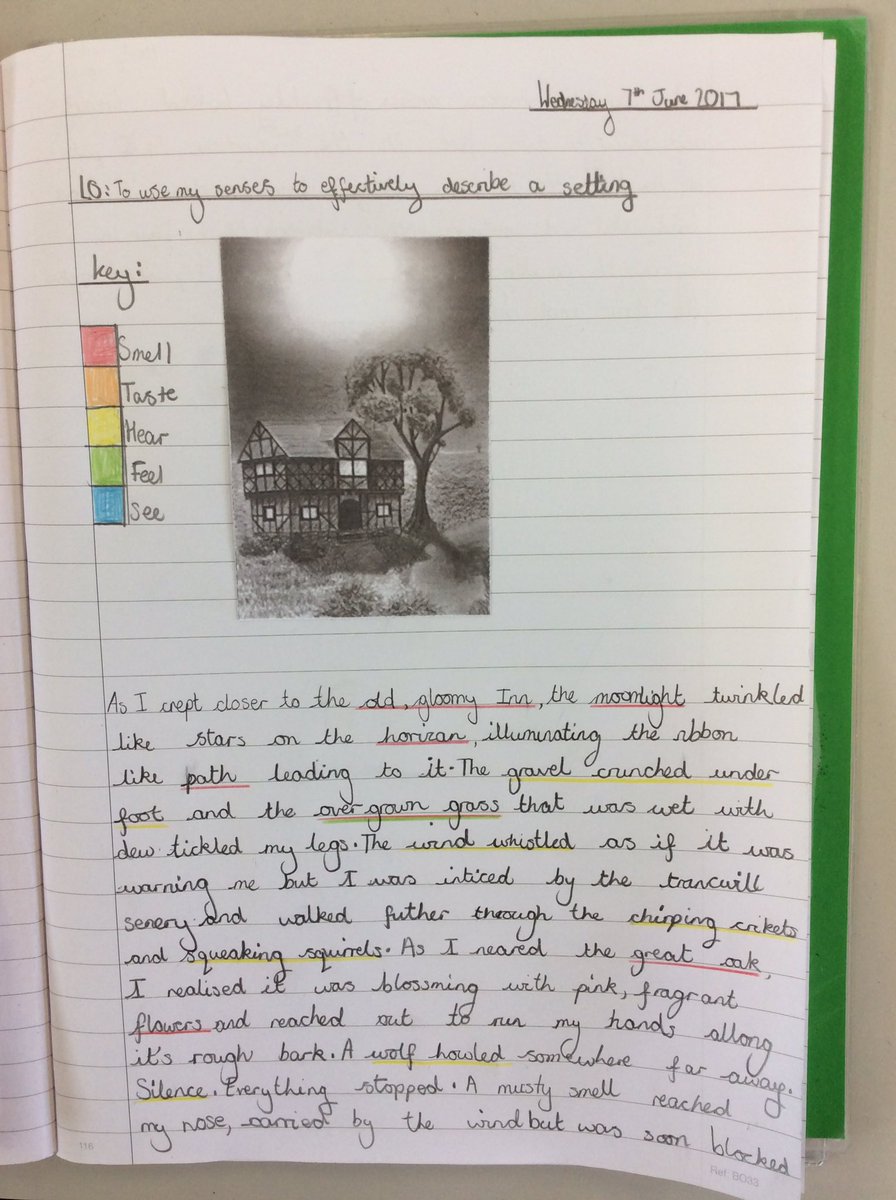 Wednesday 7th June 2017
LO: To use my senses to effectively describe a setting
key:
Smell
Taste
Hear
Feel
See
As I crept closer to the old, gloomy Inn, the moonlight twinkled
like stars on the horizan, illuminating the ribbon
like path leading to it. The gravel crunched under
foot and the over grown grass that was wet with
dew tickled my legs. The wind whistled as if it was
warning me but I was inticed by the trancwill
senery and walked futher through the chirping crikets
and squeaking squirrels. As I neared the great oak,
I realised it was blossming with pink, fragrant
flowers and reached out to run my hands allong
it's rough bark. A wolf howled somewhere far away.
Silence. Everything stopped. A musty smell reached
my nose, carried by the wind but was soon blocked
116
Ref: BO33